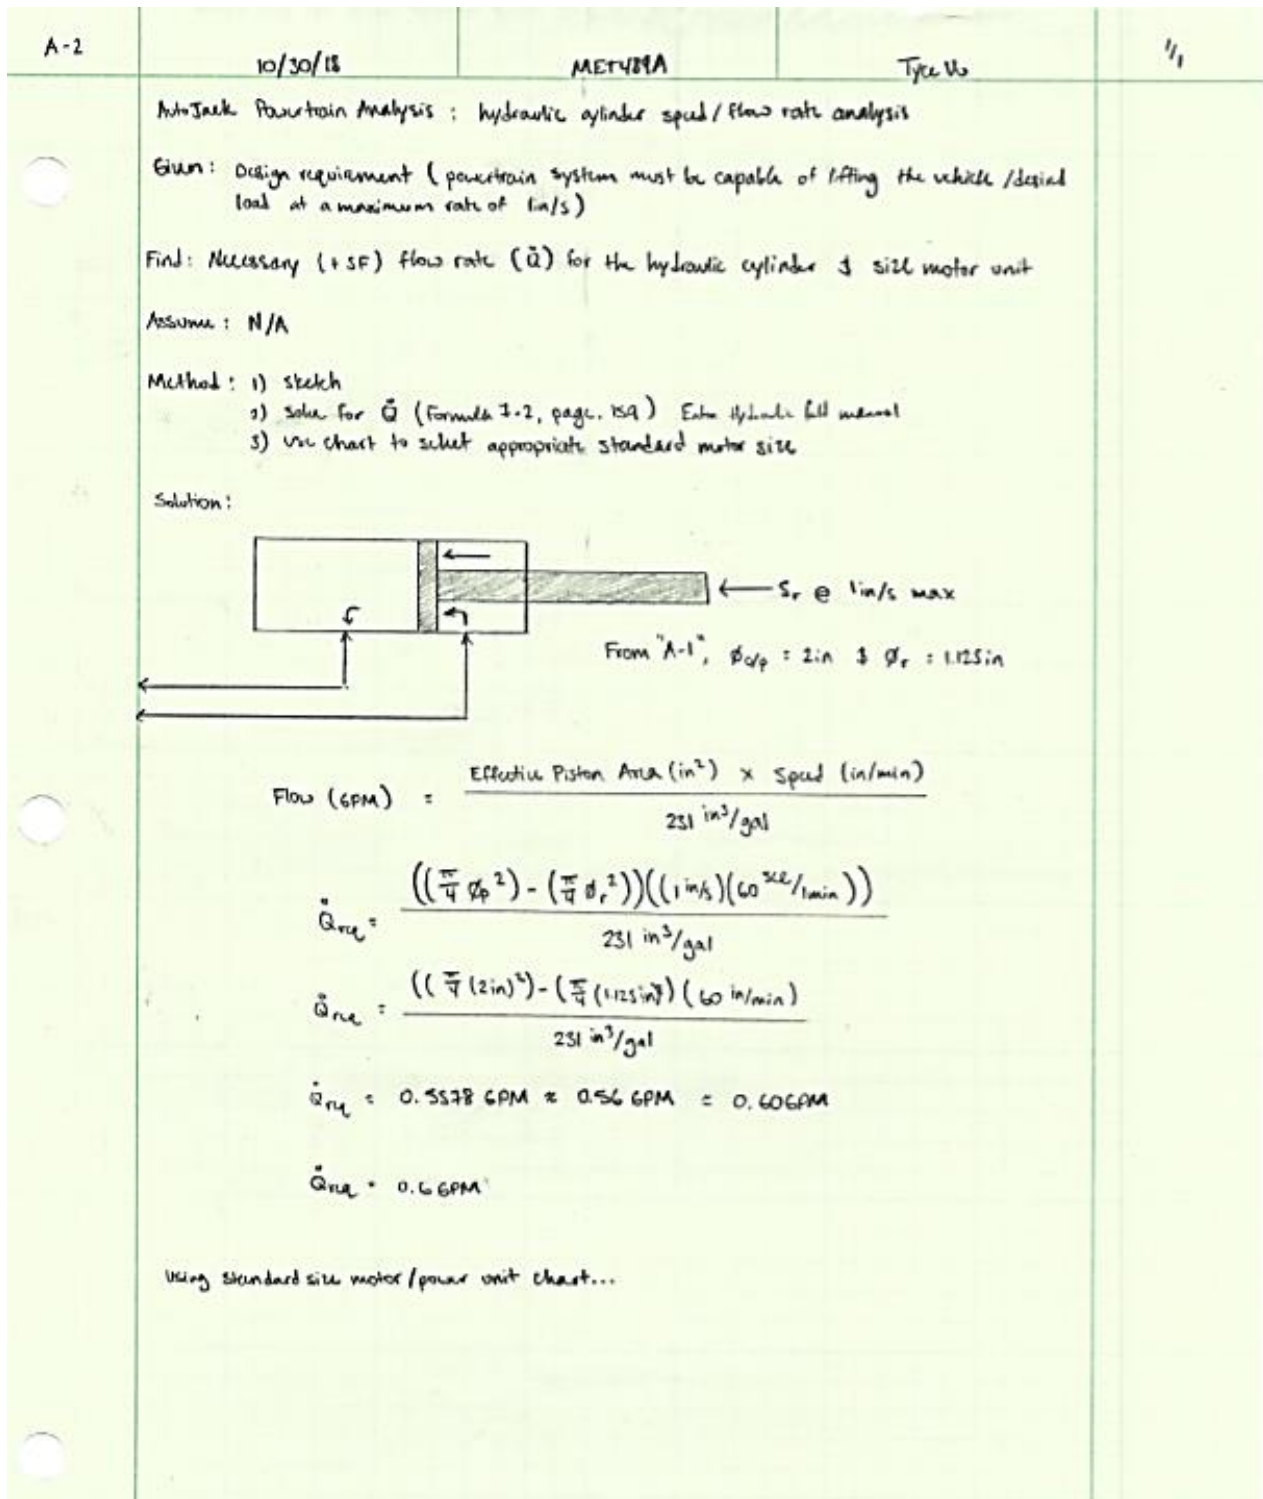 A-2
10/30/18 MET489A Tyce Vu 1/1
AutoJack Powertrain Analysis : hydraulic cylinder speed / flow rate analysis
Given: Design requirement ( powertrain system must be capable of lifting the vehicle /desired
load at a maximum rate of 1in/s)
Find: Necessary (+ SF) flow rate (Q̇) for the hydraulic cylinder & size motor unit
Assume : N/A
Method : 1) sketch
2) solve for Q̇ (Formula 7-2, page. 159) Hydraulic manual
3) use chart to select appropriate standard motor size
Solution:
Sr @ 1in/s max
From "A-1", øc/p = 2in & ør = 1.125in
Flow (GPM) = Effective Piston Area (in²) x Speed (in/min)
231 in³/gal
Q̇req = ((π/4 øp²) - (π/4 ør²))((1 in/s)(60 sec/1min))
231 in³/gal
Q̇req = ((π/4 (2in)²) - (π/4 (1.125in)²) (60 in/min)
231 in³/gal
Q̇req = 0.5578 GPM ≈ 0.56 GPM = 0.60GPM
Q̇req = 0.6 GPM
Using standard size motor / power unit chart...